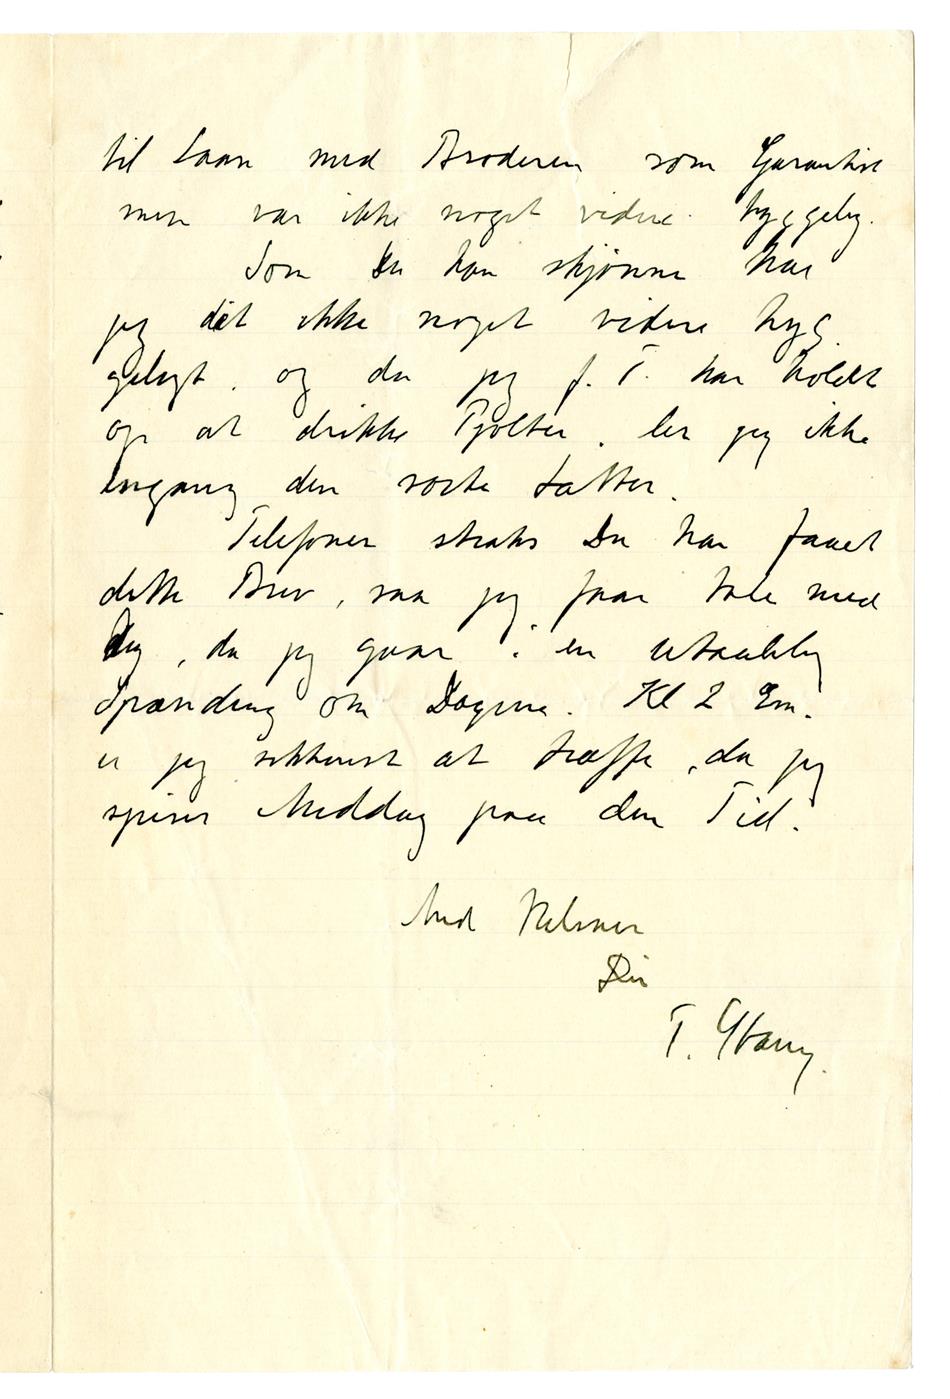 til Laan med Broderen som Garantist
men var ikke noget videre hyggelig.
Som Du kan skjønne har
jeg det ikke noget videre hyg
geligt, og da jeg f. T. har holdt
op at drikke Tjolter, ler jeg ikke
engang den sorte Latter.
Telefoner straks Du har faaet
dette Brev, saa jeg faar tale med
Dig, da jeg gaar i en utaalelig
Spænding om Dagene. Kl 2 Em.
er jeg sikkerest at træffe, da jeg
spiser Middag paa den Tid.
Med Hilsner
Din
T.